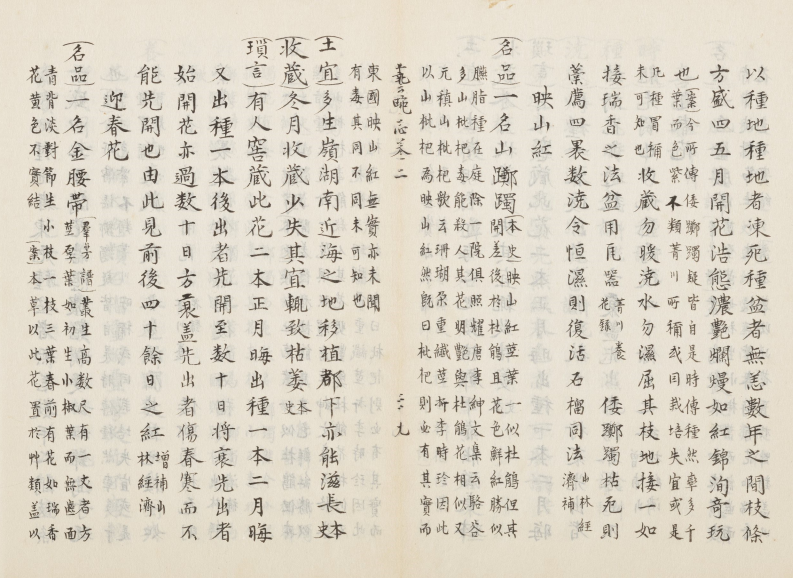 以種地種地者凍死種盆者無恙數年之間枝條
方盛四五月開花浩態濃艷爛熳如紅錦洵奇玩
也(案)今所傳倭躑躅疑皆自是時傳種然蕚多千
葉而色紫不類菁川所稱或因栽培失宜或是
凡種冒稱
未可知也
收藏勿暖澆水勿濕屈其枝地接一如
接瑞香之法盆用瓦器菁川養
花錄
倭躑躅枯死則
藁薦四裹數澆令恒濕則復活石榴同法山林經
濟補
映山紅
(名品)一名山躑躅(本史)映山紅莖葉一似杜鵑但其
開差後於杜鵑且花色鮮紅勝似
臙脂種在庭除一院俱照耀唐李紳文集云駱谷
多山枇杷毒能殺人其花明艷與杜鵑花相似又
元稹山枇杷歌云珊瑚朶重纖莖折李時珍因此
以山枇杷爲映山紅然旣曰枇杷則並有其實而
藝畹志卷二 二十九
東國映山紅無實亦未聞
有毒其同不同未可知也
(土宜)多生嶺湖南近海之地移植都下亦能滋長本史
(收藏)冬月收藏少失其宜輒致枯萎本史
(瑣言)有人窖藏此花二本正月晦出種一本二月晦
又出種一本後出者先開至數十日將衰先出者
始開花亦過數十日方衰盖先出者傷春寒而不
能先開也由此見前後四十餘日之紅增補山
林經濟
迎春花
(名品)一名金腰帶(羣芳譜)叢生高數尺有一丈者方
莖厚葉如初生小椒葉而無齒面
青背淡對節生小枝一枝三葉春前有花如瑞香
花黃色不實結(案)本草以此花置於艸類盖以